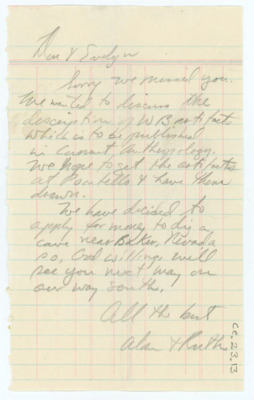 Don & Evelyn
Sorry we missed you.
We wanted to discuss the
description of WB artifacts
which is to be published
in Current Anthropology.
We hope to get the artifacts
at Pocatello & have them
drawn.
We have decided to
apply for money to dig a
cave near Baker, Nevada
so, God willing, will
see you next May on
our way south.
All the best
Alan & Ruth
CC.23.13